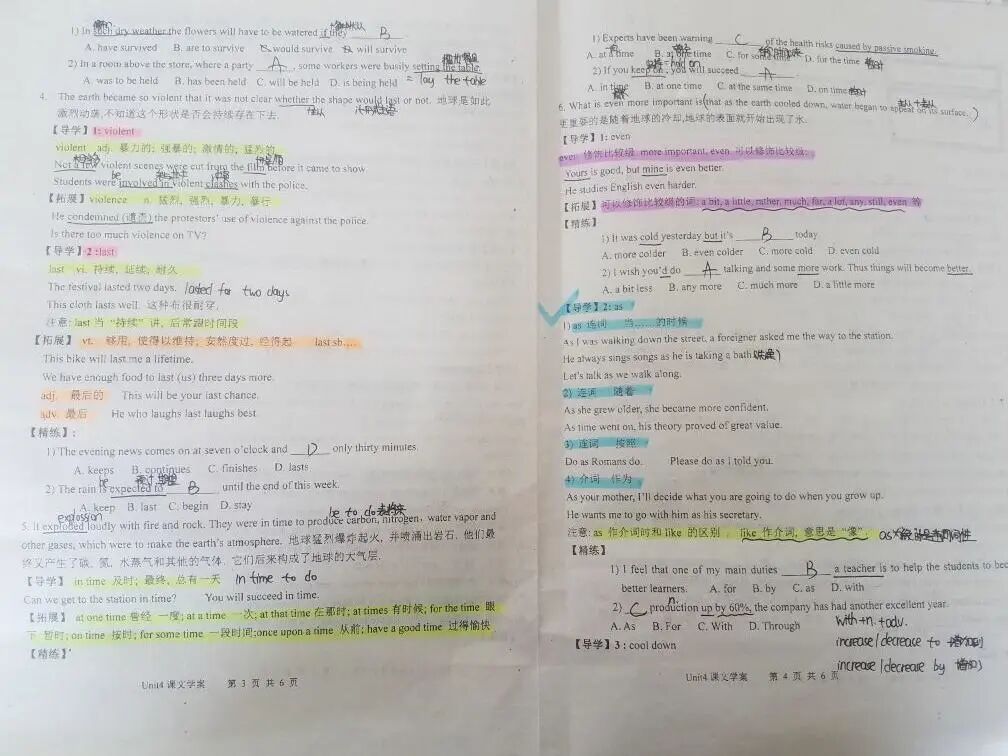 1) In such dry weather the flowers will have to be watered if they B
A. have survived B. are to survive C. would survive D. will survive
2) In a room above the store, where a party A , some workers were busily setting the table.
= lay the table
A. was to be held B. has been held C. will be held D. is being held
4. The earth became so violent that it was not clear whether the shape would last or not. 地球是如此
激烈动荡,不知道这个形状是否会持续存在下去.
【导学】1: violent
violent adj. 暴力的; 强暴的; 激情的, 猛烈的
Not a few violent scenes were cut from the film before it came to show.
be
Students were involved in violent clashes with the police.
【拓展】violence n. 猛烈, 强烈, 暴力, 暴行
He condemned (谴责) the protestors' use of violence against the police.
Is there too much violence on TV?
【导学】2 :last
last vi. 持续, 延续, 耐久
The festival lasted two days. lasted for two days
This cloth lasts well. 这种布很耐穿.
注意: last 当 “持续” 讲, 后常跟时间段
【拓展】 vt. 够用, 使得以维持; 安然度过, 经得起 last sb....
This bike will last me a lifetime.
We have enough food to last (us) three days more.
adj. 最后的 This will be your last chance.
adv. 最后 He who laughs last laughs best.
【精练】:
1) The evening news comes on at seven o'clock and D only thirty minutes.
A. keeps B. continues C. finishes D. lasts
be
2) The rain is expected to B until the end of this week.
A. keep B. last C. begin D. stay
explossion be to do
5. It exploded loudly with fire and rock. They were in time to produce carbon, nitrogen, water vapor and
other gases, which were to make the earth's atmosphere. 地球猛烈爆炸起火, 并喷涌出岩石. 他们最
终又产生了碳, 氮, 水蒸气和其他的气体. 它们后来构成了地球的大气层.
【导学】 in time 及时; 最终, 总有一天 in time to do
Can we get to the station in time? You will succeed in time.
【拓展】 at one time 曾经 一度; at a time 一次; at that time 在那时; at times 有时候; for the time 眼
下 暂时; on time 按时; for some time 一段时间;once upon a time 从前; have a good time 过得愉快
【精练】
Unit4 课文学案 第 3 页 共 6 页
1) Experts have been warning C of the health risks caused by passive smoking.
A. at a time B. at one time C. for some time D. for the time
= hold on
2) If you keep on , you will succeed A .
A. in time B. at one time C. at the same time D. on time
6. What is even more important is that as the earth cooled down, water began to appear on its surface.
更重要的是随着地球的冷却,地球的表面就开始出现了水.
【导学】1: even
even 修饰比较级 more important, even 可以修饰比较级.
Yours is good, but mine is even better.
He studies English even harder.
【拓展】可以修饰比较级的词: a bit, a little, rather, much, far, a lot, any, still, even 等
【精练】
1) It was cold yesterday but it's B today
A. more colder B. even colder C. more cold D. even cold
2) I wish you'd do A talking and some more work. Thus things will become better.
A. a bit less B. any more C. much more D. a little more
【导学】2: as
1) as 连词 当……的时候
As I was walking down the street, a foreigner asked me the way to the station.
He always sings songs as he is taking a bath (洗澡)
Let's talk as we walk along.
2) 连词 随着
As she grew older, she became more confident.
As time went on, his theory proved of great value.
3) 连词 按照
Do as Romans do. Please do as I told you.
4) 介词 作为
As your mother, I'll decide what you are going to do when you grow up.
He wants me to go with him as his secretary.
注意: as 作介词时和 like 的区别 , like 作介词, 意思是 “像”.
【精练】
1) I feel that one of my main duties B a teacher is to help the students to bec
better learners. A. for B. by C. as D. with
n.
2) C production up by 60%, the company has had another excellent year.
A. As B. For C. With D. Through with+n.+adv.
【导学】3 : cool down increase/decreace to 增加到
increase/decrease by 增加了
Unit4 课文学案 第 4 页 共 6 页